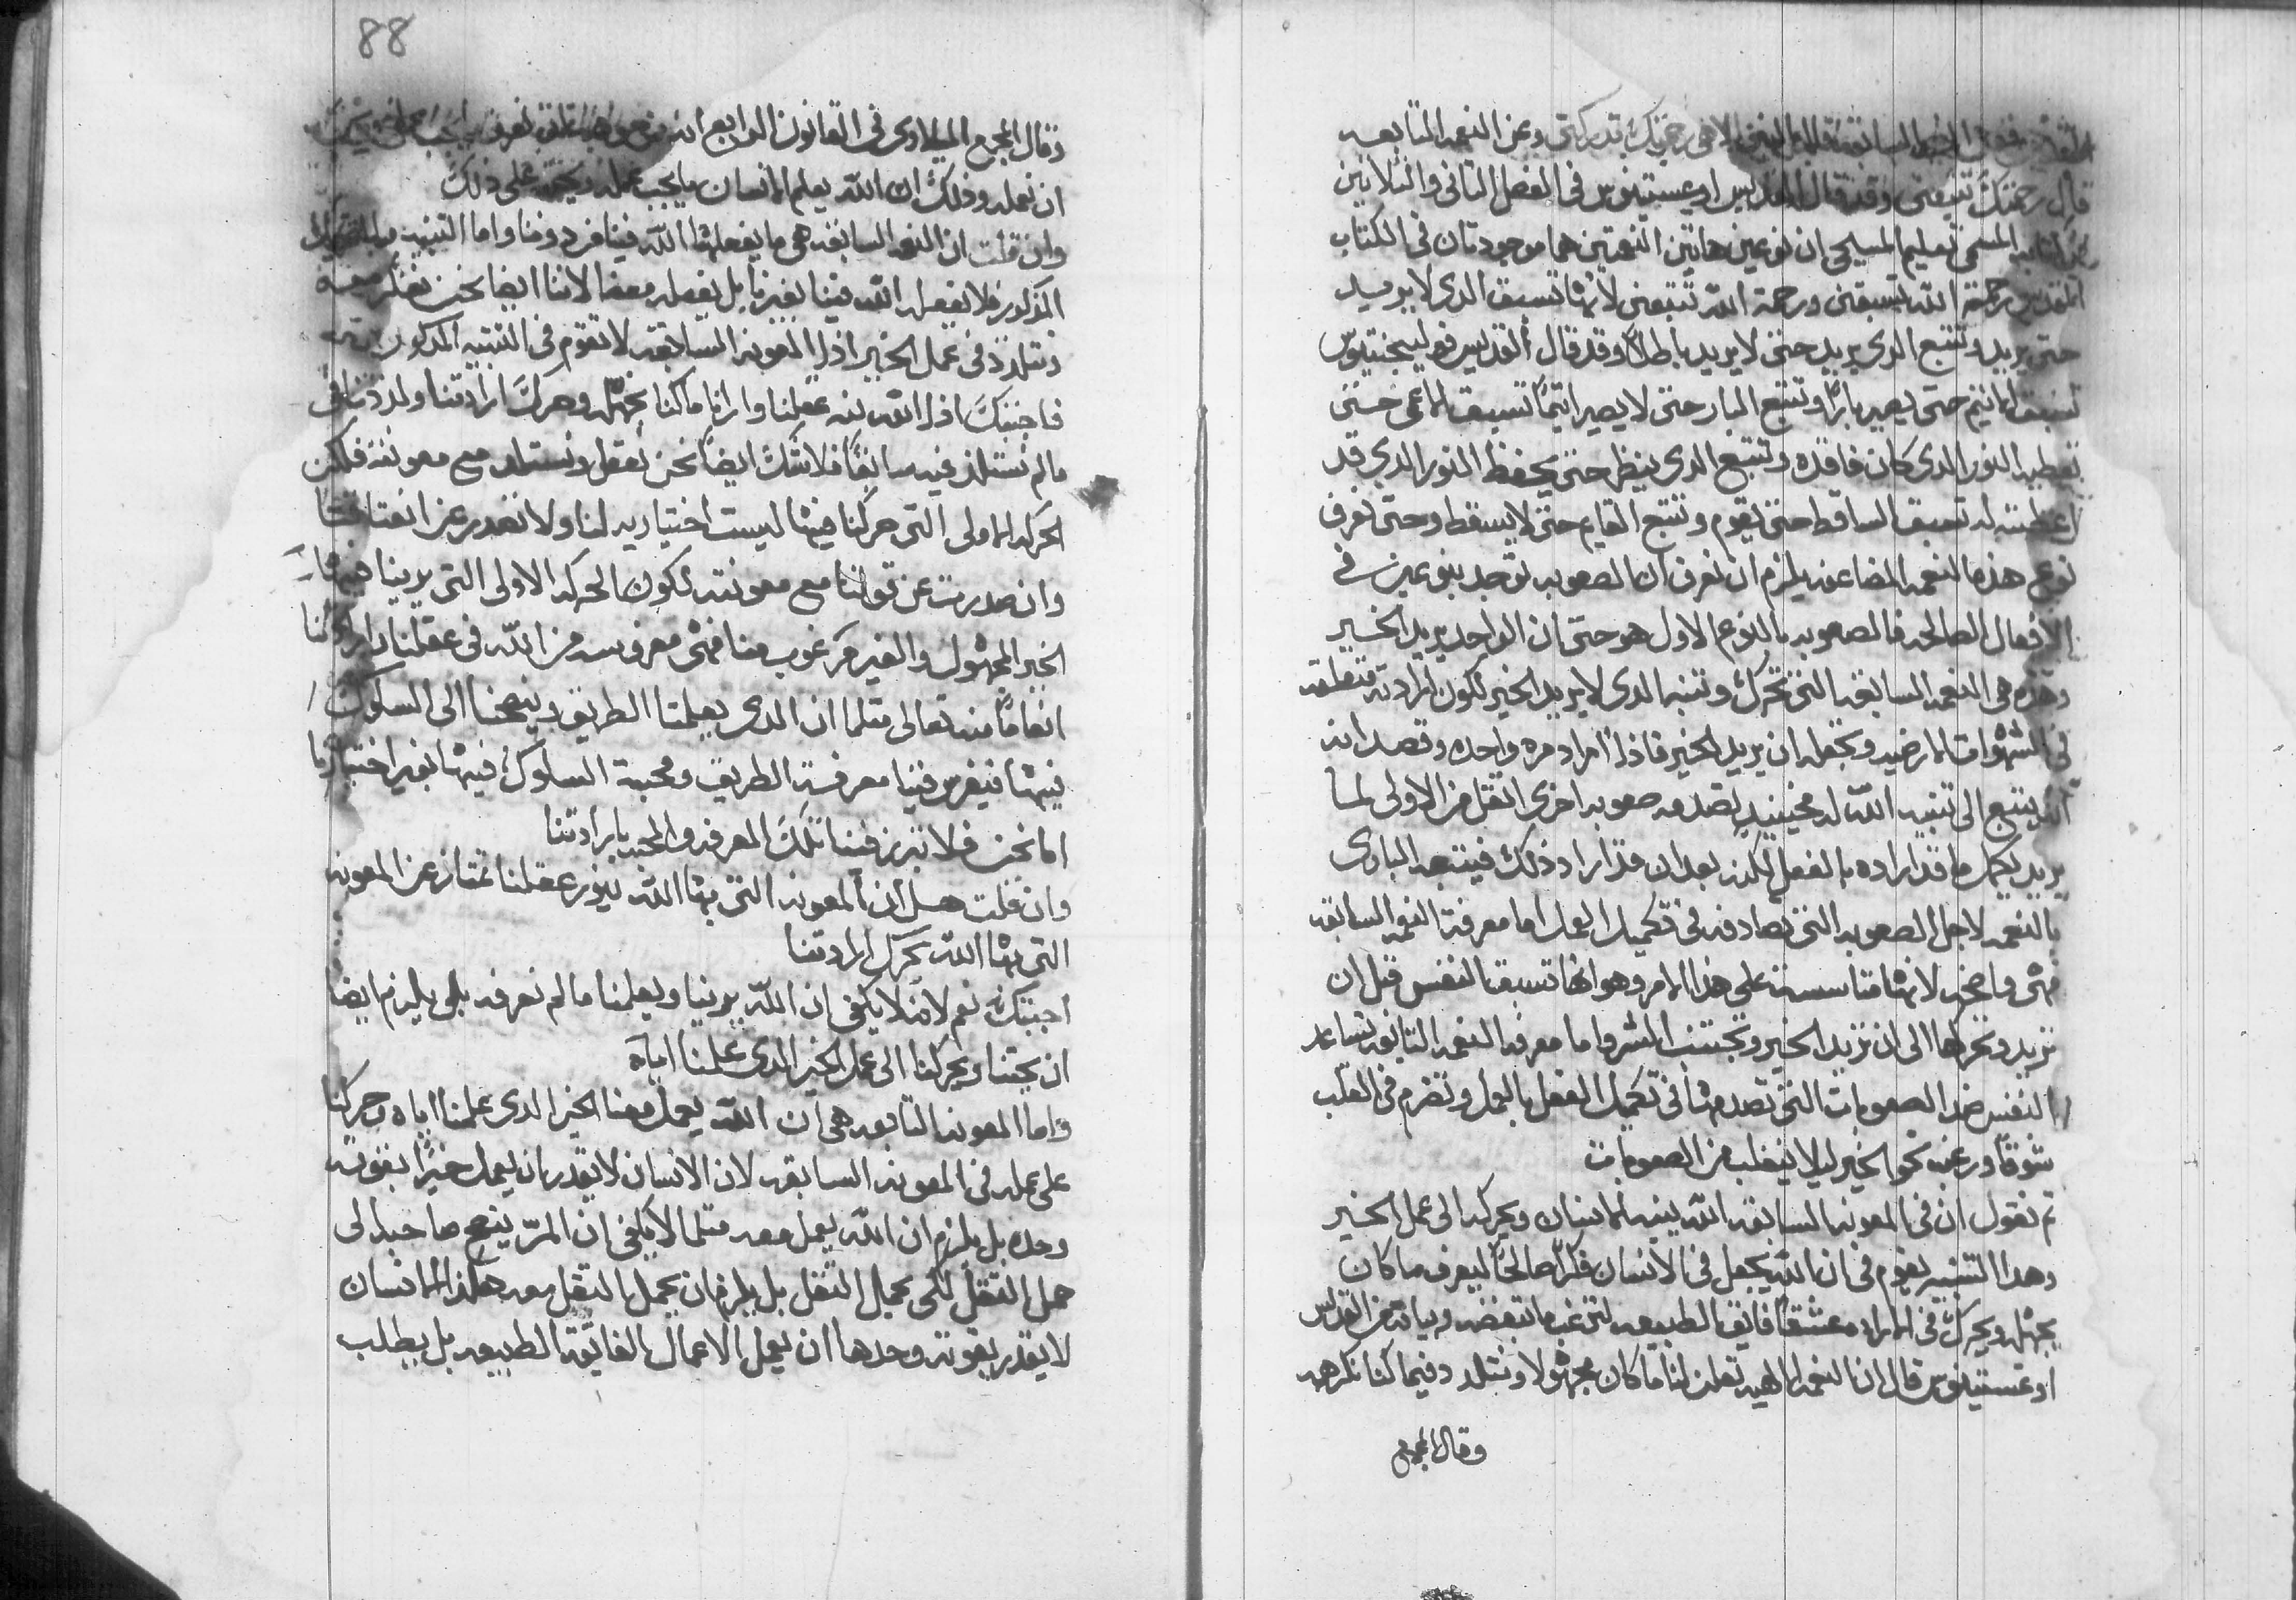 السابقة الاهي رحمتك تدركني وعن النعمه التابعه
قال رحمتك تتبعني وقد قال القديس اوغستينوس في الفصل التاني والتلاتين
المسمى تعليم المسيحي ان نوعين هاتين النعمتين هما موجودتان في الكتاب
المقدس رحمة الله تسبقني ورحمة الله تتبعني لانها تسبق الدى لا يريد
حتى يريد وتتبع الدى يريد حتى لا يريد باطلاً وقد قال القديس فولجنتيوس
تسبق الاتيم حتى يصير باراً وتتبع البار حتى لا يصير اتيماً تسبق الاعمى حتى
تعطيه النور الدى كان فاقده وتتبع الدى ينظر حتى يحفظ النور الدي قد
اعطته له تسبق الساقط حتى يقوم وتتبع القايم حتى لا يسقط وحتى نعرف
نوعي هذه النعمه المضاعفه يلزم ان نعرف ان الصعوبه توجد بنوعين في
الافعال الصالحه فالصعوبه بالنوع الاول هو حتى ان الواحد يريد الخير
وهذه هي النعمه السابقه التي تحرك وتنبه الدى لا يريد الخير لكون ارادته متعلقه
في الشهوات الارضيه وتجعله ان يريد الخير فاذا اراد مره واحده وقصد انه
يتبع الى تنبيه الله له فحينيدٍ تصدمه صعوبه اخرى اتقل من الاولى لما
يريد يكمل ما قد اراده بالفعل لكنه بعد ان قد اراد ذلك فيتبعه البارى
بالنعمه لاجل الصعوبه التي تصادفه في تكميل العمل اما معرفة النعمه السابقه
فهي واضحه لانها متاسسه على هذا الامر وهو انها تسبق النفس قبل ان
تريد وتحركها الى ان تريد الخير وتجتنب الشر واما معرفة النعمه التابعه تساعد
النفس ضد الصعوبات التي تصدمها في تكميل الفعل بالعمل وتضرم في القلب
شوقاً ورغبه نحو الخير ليلا ينغلب من الصعوبات
تم نقول ان في المعونه السابقه الله ينبه الانسان ويحركه الى عمل الخير
وهدا التنبيه يقوم في ان الله يجعل في الانسان فكراً صالحاً ليعرف ما كان
يجهله ويحرك في الاراده عشقاً فايق الطبيعه لترغب ما تبغضه وبيانه من القديس
اوغستينوس قال ان النعمه الالهيه تعلن لنا ما كان مجهولا ونتلدد فيما كنا نكرهه
وقال المجمع
88
وقال المجمع الميلاوى في القانون الرابع انه
ان نعمله وذلك ان الله يعلم الانسان ما يجب عمله ويحته على ذلك
وان قلت ان النعمه السابقه هي ما يفعلها الله فينا من دوننا واما التنبيه
المذكور فلا يفعله الله فينا بغيرنا بل يفعله معنا لاننا ايضا نحن نفتكر معه
ونتلدد في عمل الخير اذا المعونه السابقه لا تقوم في التنبيه المدكور
فاجبتك اذا الله نبه عقلنا وارانا ما كنا نجهله وحرك ارادتنا ولددنا في
ما لم نستلذ فيه سابقاً فلا شك ايضاً نحن نعقل ونستلد مع معونته فلكن
الحركه الاولى التي حركنا فيها ليست اختياريه لنا ولا تصدر عن
وان صدرت عن قواتنا مع معونته لكون الحركه الاولى التي يرينا فيها
الخير المجهول والغير مرغوب منا فهي مغروسه من الله في عقلنا وارادتنا
انعاماً منه تعالى متلما ان الدى يعلمنا الطريق وينصحنا الى السلوك
فيها فيغرس فينا معرفة الطريق ومحبة السلوك فيها بغير اختيارنا
اما نحن فلا نبرز فينا تلك المعرفه والمحبه بارادتنا
وان قلت هل ان المعونه التي بها الله ينور عقلنا تمتاز عن المعونه
التي بها الله يحرك ارادتنا
اجبتك نعم لانه لا يكفي ان الله يرينا ويعلمنا ما لم نعرفه بل يلزم ايضاً
ان يحتنا ويحركنا الى عمل الخير الدى علمنا اياه
واما المعونه التابعه هي ان الله يعمل معنا الخير الدى علمنا اياه وحركنا
على عمله في المعونه السابقه لان الانسان لا يقدر ان يعمل خيراً بقوته
وحده بل يلزم ان الله يعمل معه متلما لا يكفي ان المرّ ينصح صاحبه الى
حمل التقل لكي يحمل التقل بل يلزم ان يحمل التقل معه هكذا الانسان
لا يقدر بقوته وحدها ان يعمل الاعمال الفايقه الطبيعه بل يطلب